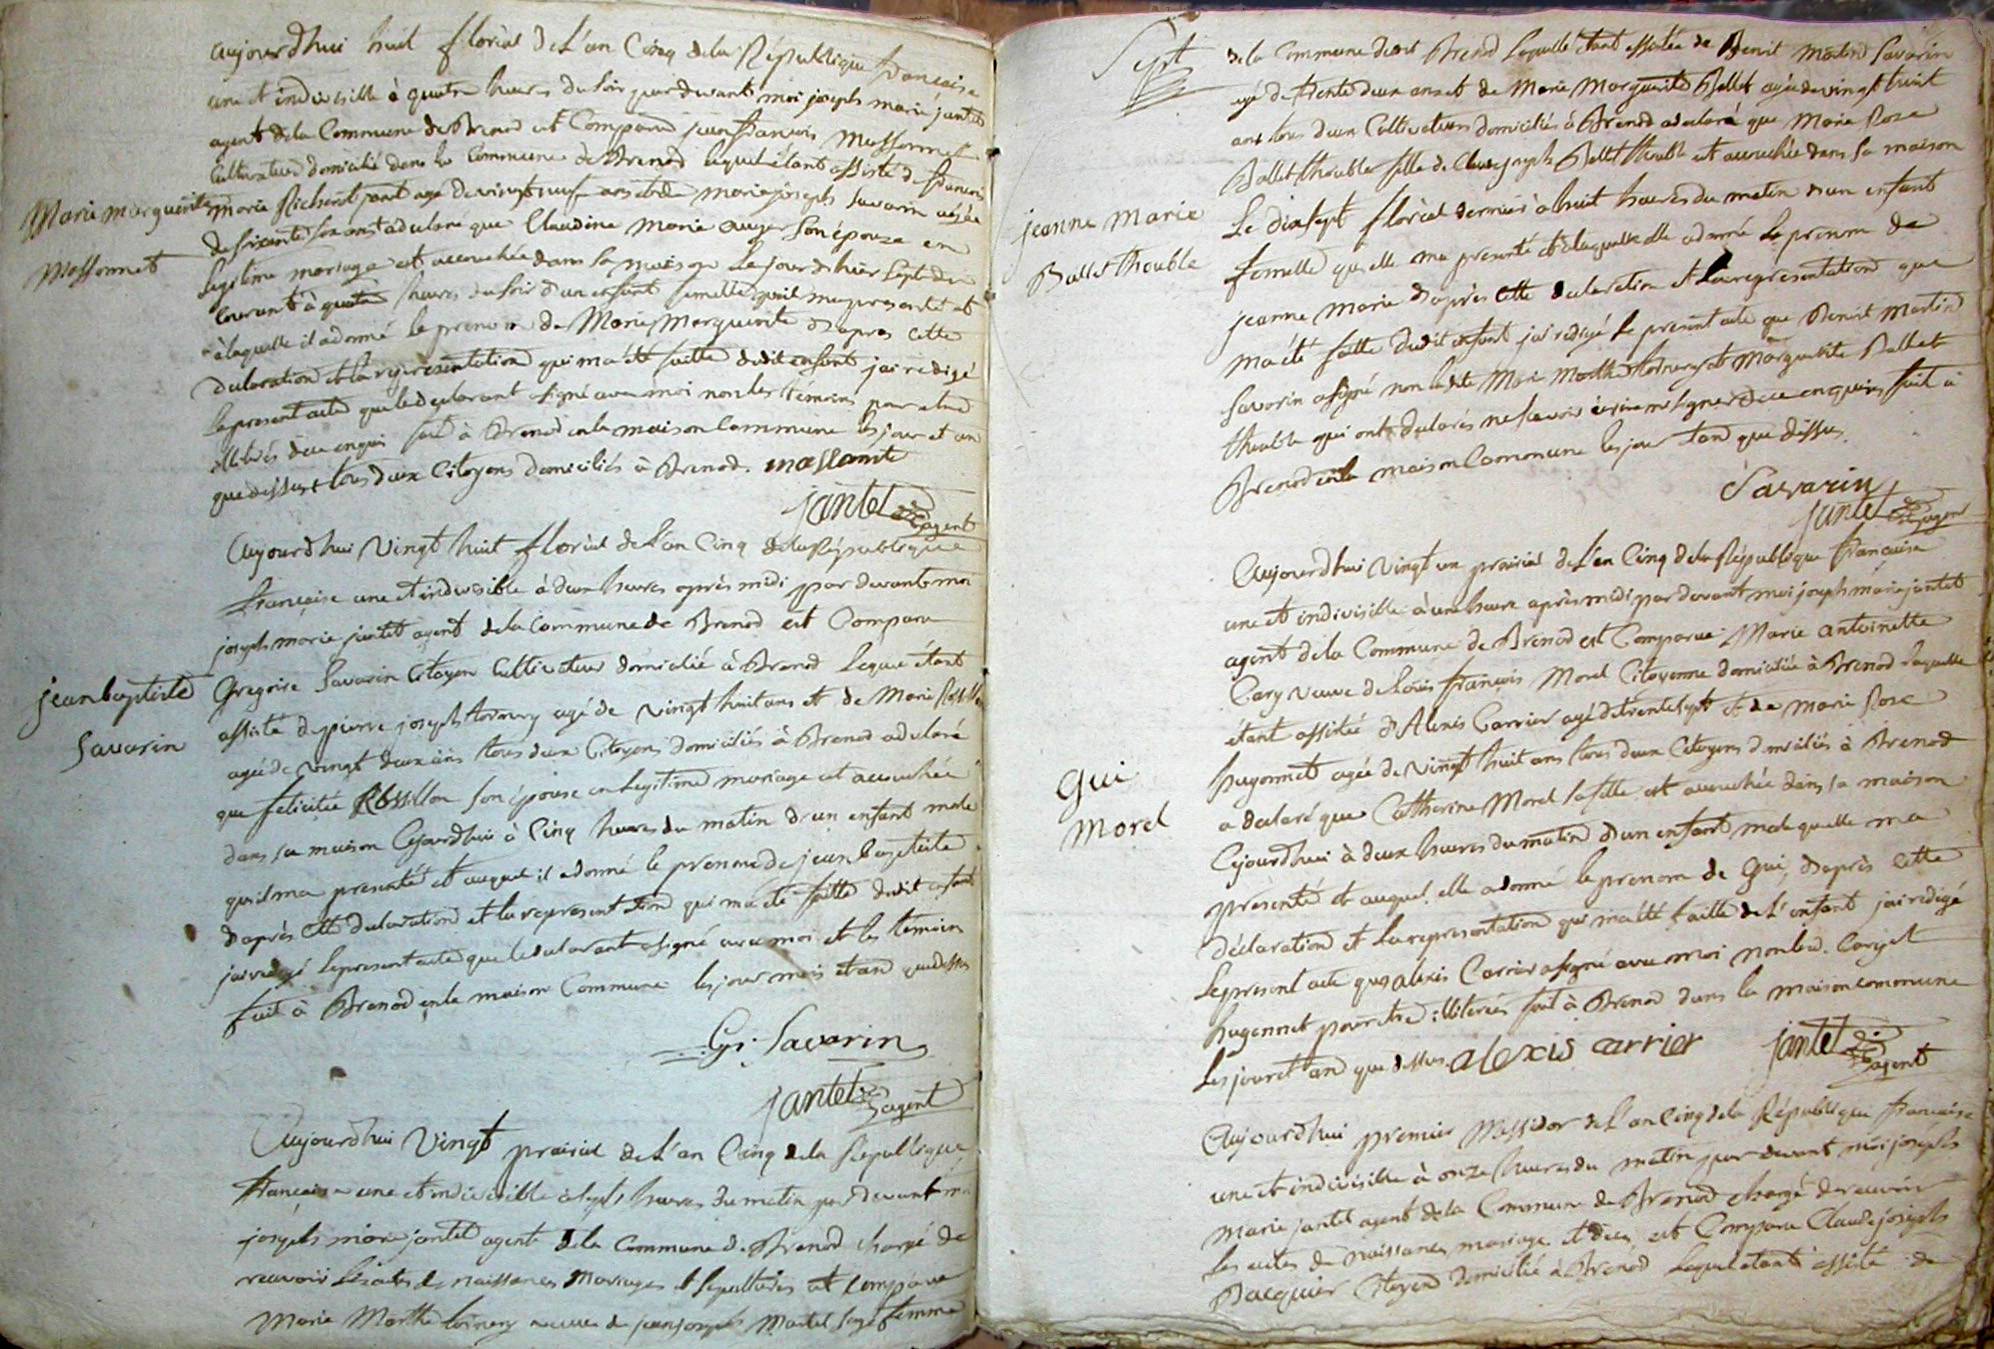 aujourdhui huit floréal de L'an Cinq de la République francaise
une et indivisible à quatre heures du soir par devant moi joseph marie jantet
agent de la Commune de Brenod est Comparu jean francois Massonnet
Cultivateur domicilié dans la Commune de Brenod lequel étant assisté de francois
Marie Marguerite
marie Richerot jant agé de vingt neuf ans et de marie joseph Savarin agée
de soixante six ans a declaré que Claudine Marie auger son épouze en
Massonnet
Legitime mariage est accouchée dans sa maison Le jour d'hier sept du
courant à quatre heures du soir d'un enfant femelle quil ma presenté et
a laquelle il a donné le prenom de Marie Marguerite d'apres cette
declaration et la representation qui ma été faitte dudit enfant jai redigé
le present acte que le declarant a signé avec moi non les témoins pour etre
illiterés de ce enquis fait à Brenod en la maison Commune les jour et an
que dessus tous deux Citoyens domiciliés à Brenod. massonnte
jantet agent
Aujourdhui Vingt huit floréal de L'an Cinq de la République
francaise une et indivisible à deux heures après midi par devant moi
joseph marie jantet agent de la Commune de Brenod est Comparu
jean baptiste
Gregoire Savarin Citoyen Cultivateur domicilié à Brenod Lequel étant
Savarin
assisté de pierre joseph tornery agé de vingt huit ans et de Marie
agée de vingt deux ans tous deux Citoyens domiciliés à Brenod a declaré
que felicitée Rossillon son épouse en Legitime mariage est accouchée
dans sa maison Cejourdhui à Cinq heures du matin d'un enfant male
quil ma presenté et auquel il a donné le prenom de jean baptiste
daprès cette declaration et la representation qui ma été faitte dudit enfant
jai redigé le present acte que le declarant a signé avec moi et les témoin
fait à Brenod en la maison Commune les jour mois et an que dessus
Gr. Savarin
jantet agent
Aujourdhui Vingt prairial de L'an Cinq de la République
francaise une et indivisible à sept heures du matin par devant moi
joseph marie jantet agent de la Commune de Brenod chargé de
recevoir les actes de naissances Mariages et sepultures est comparue
Marie Marthe tornery veuve de jean joseph Martel sage femme
Sept
de la Commune dudit Brenod Laquelle étant assistée de Benoit Martin Savarin
agé de trente deux ans et de Marie Marguerite Ballet agée de vingt huit
ans tous deux Cultivateurs domiciliés à Brenod a declaré que Marie Roze
Ballet thouble fille de Claude joseph Ballet thouble est accouchée dans sa maison
jeanne Marie
Le dix sept floréal dernier à huit heures du matin d'un enfant
Ballet thouble
femelle qu'elle ma presenté et a laquelle elle a donné le prenom de
jeanne Marie d'après cette declaration et la representation que
ma été faitte dudit enfant jai redigé le present acte que Benoit Martin
Savarin a signé non ladite Marie Marthe tornery et Marguerite Ballet
thouble qui ont declarés ne scavoir écrire ni signer de ce enquises fait à
Brenod en la maison Commune les jour et an que dessus.
Savarin
jantet agent
Aujourdhui vingt un prairial de L'an Cinq de la République francaise
une et indivisible à une heure après midi par devant moi joseph marie jantet
agent de la Commune de Brenod est Comparue Marie antoinette
Carry veuve de Louis francois Morel Citoyenne domiciliée à Brenod Laquelle
étant assistée d'Alexis Carrier agé de trente sept et de marie Roze
Gui
hugonnet agée de vingt huit ans tous deux Citoyens domiciliés à Brenod
Morel
a declaré que Catherine Morel sa fille est accouchée dans sa maison
Cejourdhui à deux heures du matin d'un enfant male quelle ma
présenté et auquel elle a donné le prenom de Gui, daprès cette
déclaration et la representation qui ma été faitte de L'enfant jai redigé
Le present acte que alexis Carrier a signé avec moi non led. Carry et
hugonnet pour etre illiterées fait à Brenod dans la maison commune
Les jour et an que dessus. alexis carrier jantet agent
Aujourdhui premier Messidor de L'an Cinq de la République francaise
une et indivisible à onze heures du matin par devant moi joseph
marie jantet agent de la Commune de Brenod chargé de recevoir
Les actes de naissances, mariage et deces est Comparu Claude joseph
Bacquier Citoyen domicilié à Brénod Lequel étant assisté de